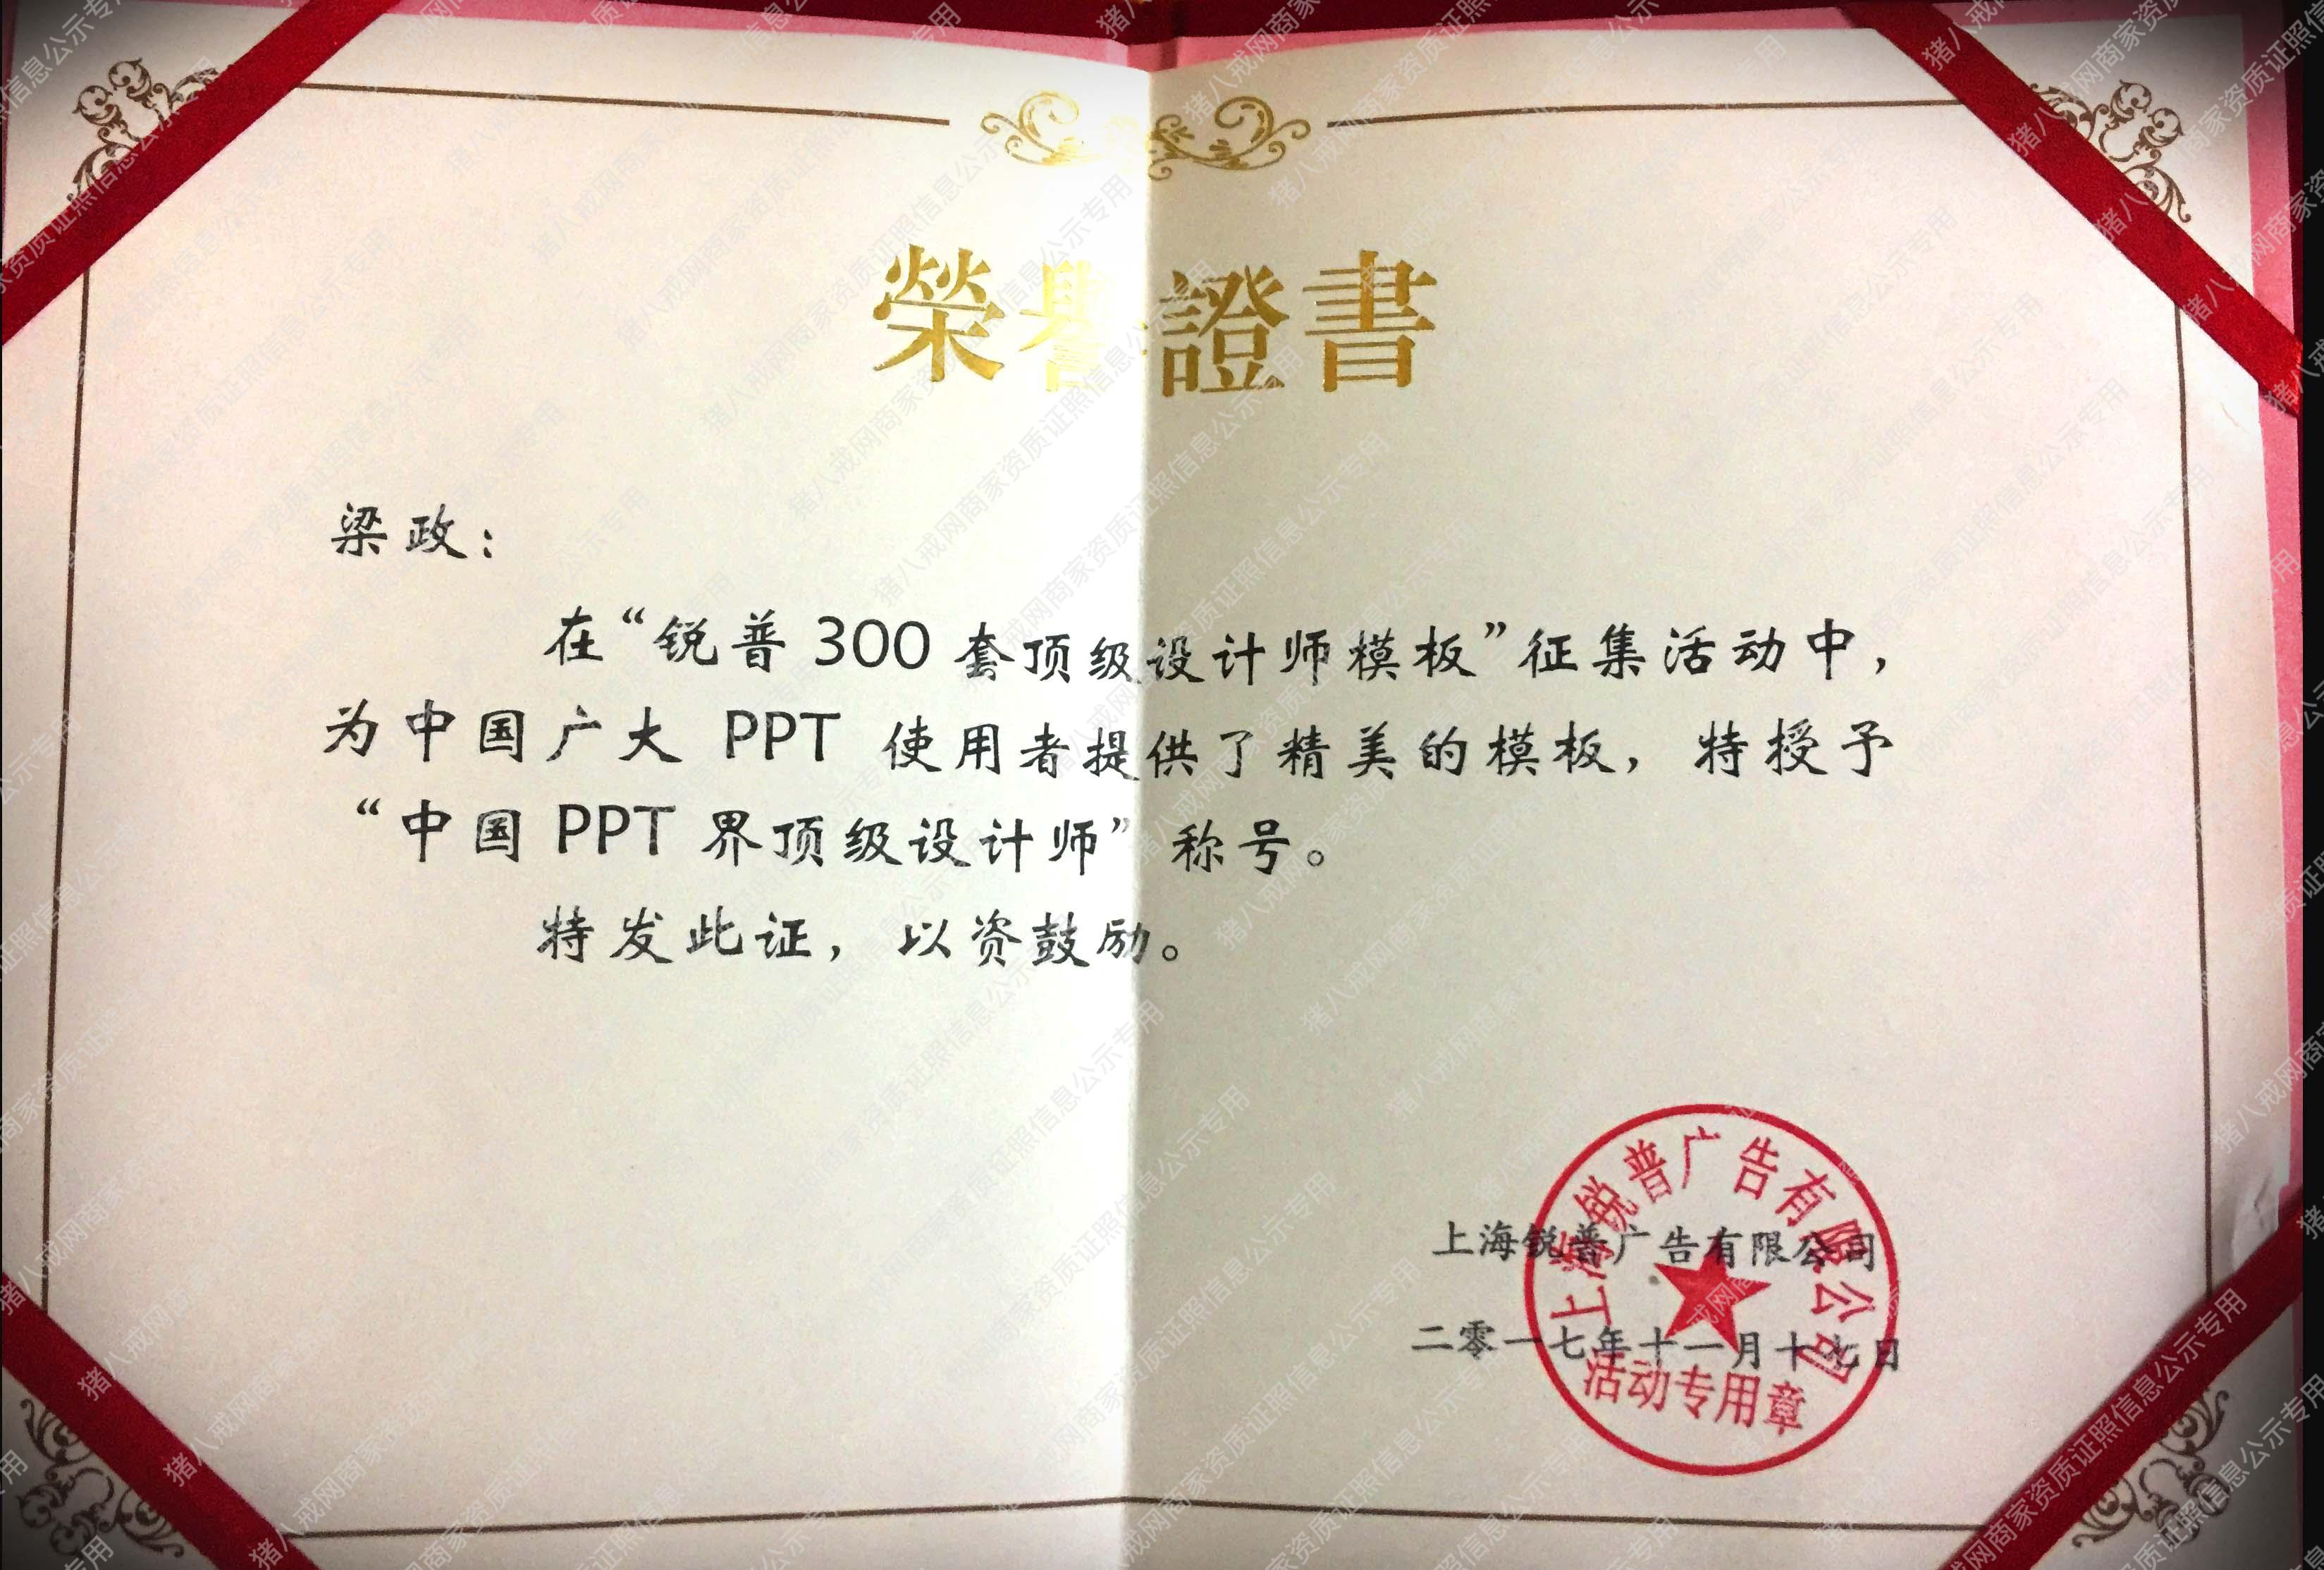 榮譽證書
梁政：
在“锐普 300 套顶级设计师模板”征集活动中，
为中国广大 PPT 使用者提供了精美的模板，特授予
“中国 PPT 界顶级设计师”称号。
特发此证，以资鼓励。
上海锐普广告有限公司
二零一七年十一月十七日
上海锐普广告有限公司
活动专用章
猪八戒网商家资质证照信息公示专用